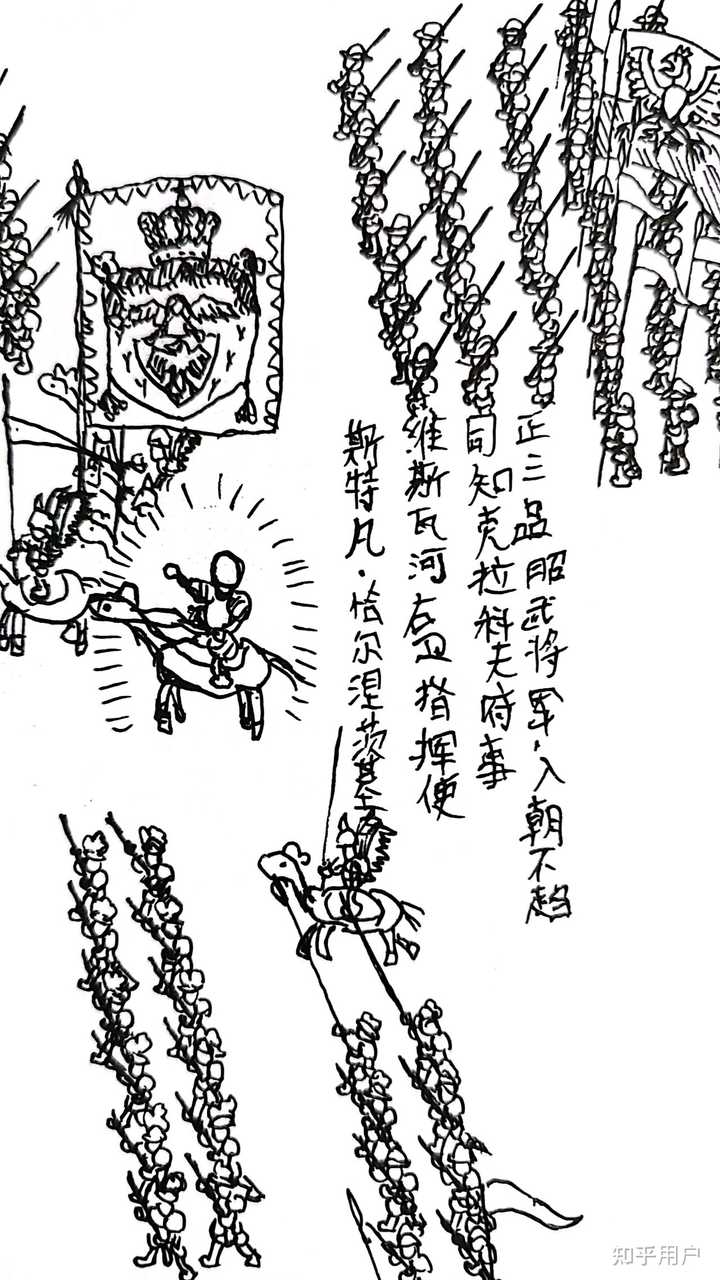 正三品昭武将军，入朝不趋
同知克拉科夫府事
维斯瓦河右卫指挥使
斯特凡·恰尔涅茨基
知乎用户